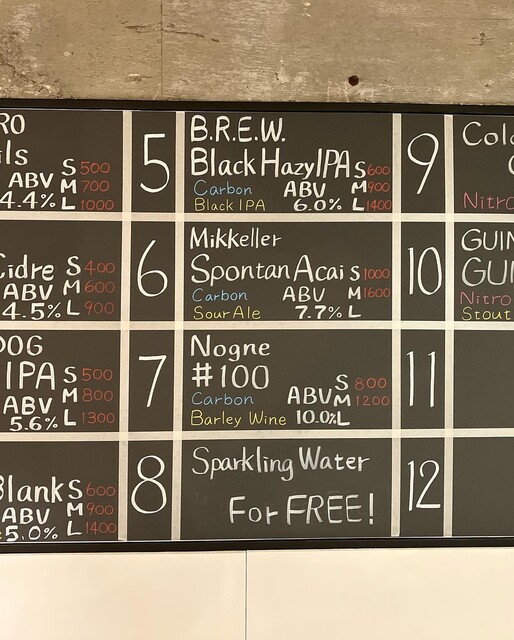 RO
ils S 500
ABV M 700
4.4% L 1000
Cidre S 400
ABV M 600
4.5% L 900
DOG
IPA S 500
ABV M 800
5.6% L 1300
Blank S 600
ABV M 900
5.0% L 1400
5
B.R.E.W.
Black Hazy IPA S 600
Carbon ABV M 900
Black IPA 6.0% L 1400
6
Mikkeller
Spontan Acai S 1000
Carbon ABV M 1600
Sour Ale 7.7% L
7
Nogne
#100 S 800
Carbon ABV M 1200
Barley Wine 10.0% L
8
Sparkling Water
For FREE!
9
Col
Nitro
10
GUIN
GU
Nitro
Stout
11
12